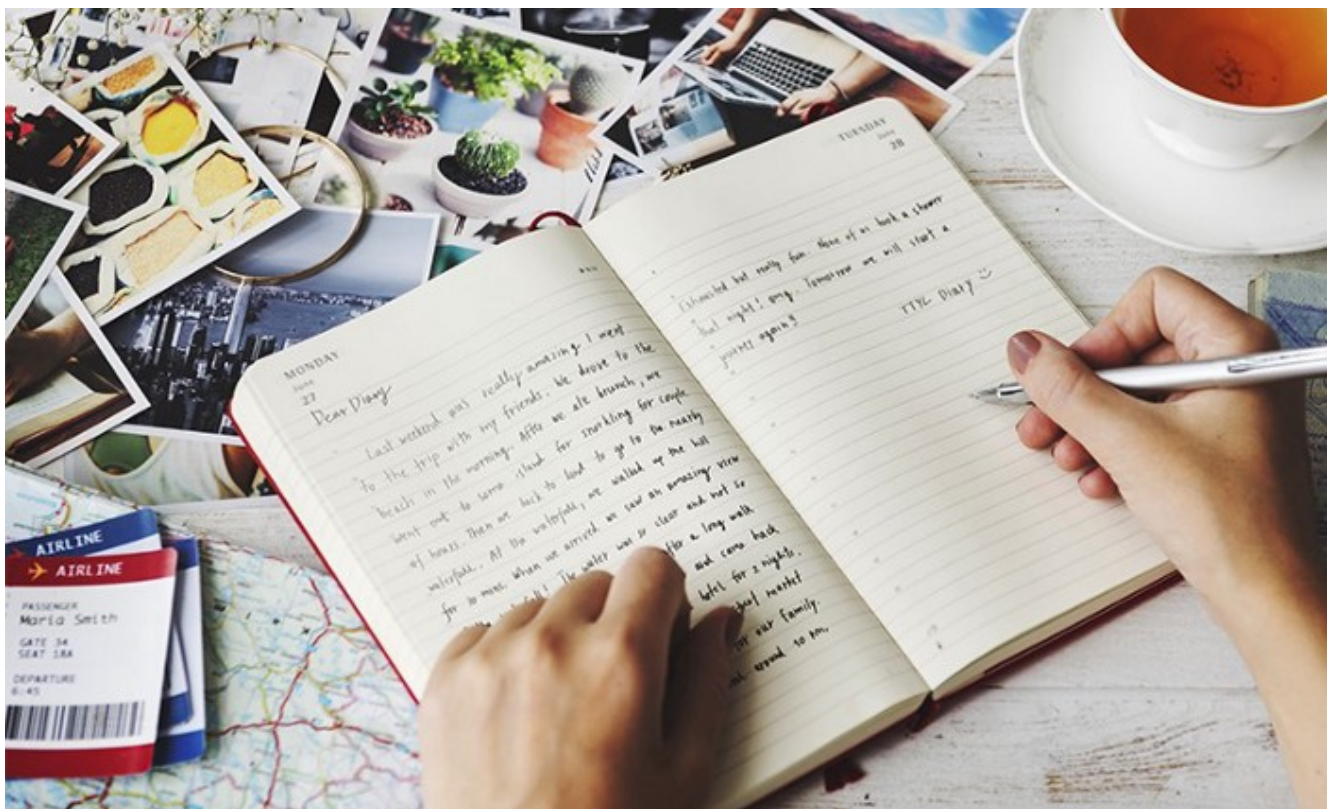 MONDAY
June
27
Dear Diary
Last weekend was really amazing. I went
to the trip with my friends. We drove to the
beach in the morning. After we ate brunch, we
went out to some island for snorkling for couple
of hours. Then we back to land to go to the nearby
waterfall. At the waterfall, we walked up the hill
for 30 mins. When we arrived we saw an amazing view
The water was so clear and not so
after a long walk
and come back
hotel for 2 nights.
market
for our family.
around 10 pm,
TUESDAY
June
28
Exhausted but really fun. None of us took a shower
that night! omg. Tomorrow we will start a
journey again!!
TTYL Diary
AIRLINE
AIRLINE
PASSENGER
Maria Smith
GATE 34
SEAT 18A
DEPARTURE
6:45